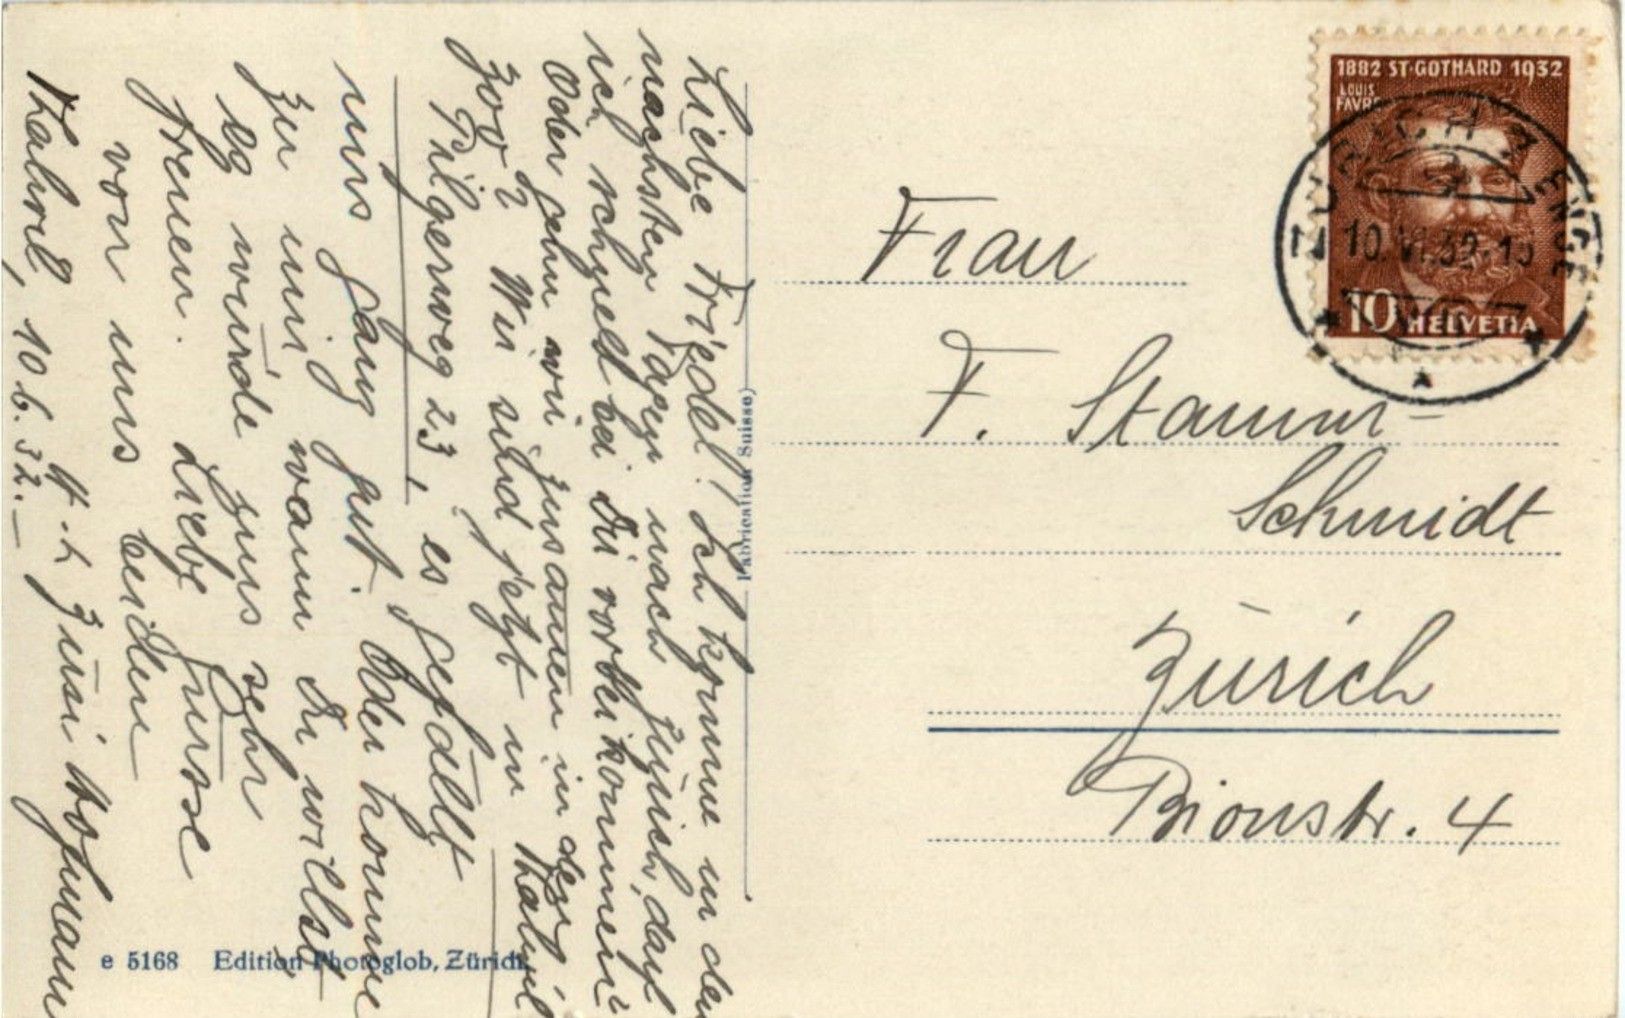 Liebe Friedel! Ich komme in den
nächsten Tagen nach Zürich, darf
ich schnell bei Dir vorbei kommen?
Oder gehn wir zusammen in den
Zoo? Wir sind jetzt in Thalwil
Pilgerweg 23, es gefällt
uns ganz gut. Oder komme
zu mir wann Du willst,
es würde uns sehr
freuen. Liebe Grüsse
von uns beiden
H. & Züsi Hofmann
Thalwil, 10.6.32.
Fabrication Suisse)
e 5168 Edition Photoglob, Zürich
1882 ST·GOTHARD 1932
LOUIS
FAVRE
10 HELVETIA
ENGE
10.VI.32
Frau
F. Stamm-
Schmidt
Zürich
Bionstr. 4